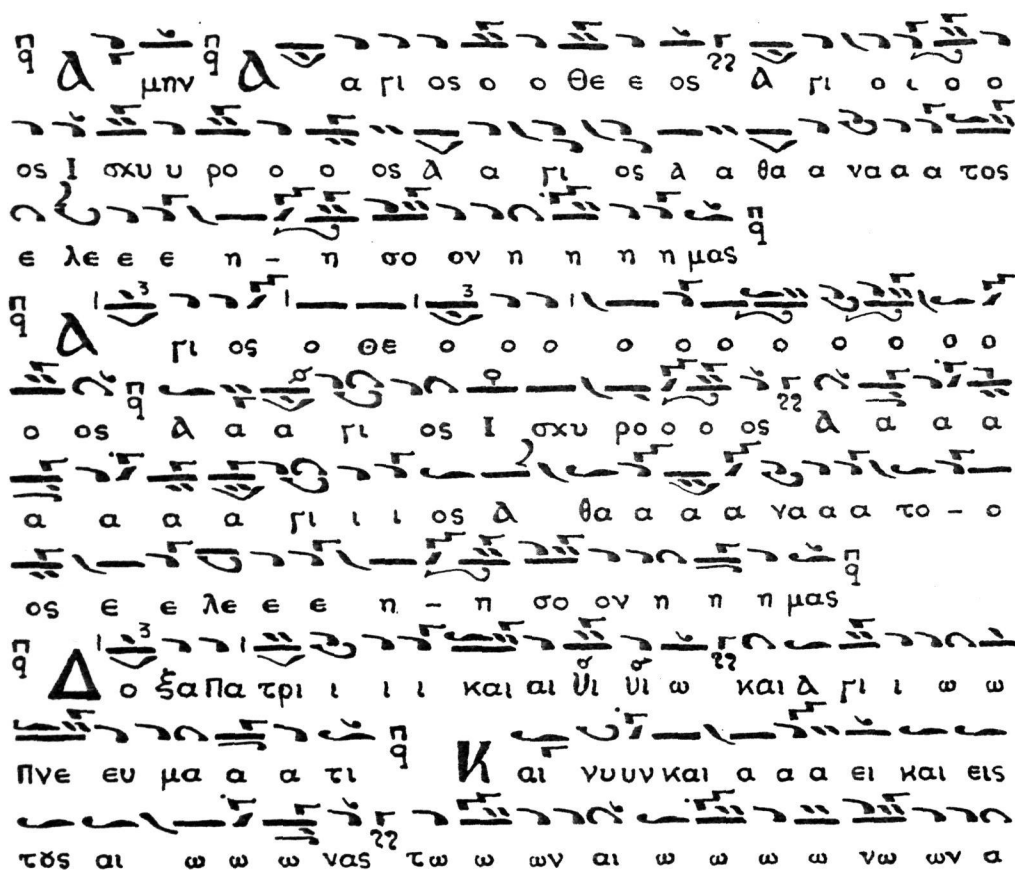 Ἀ μην Ἀ α γι ος ο ο Θε ε ος Ἀ γι ο ι ο ο
ος Ι σχυ υ ρο ο ο ος Ἀ α γι ος Ἀ α θα α να α α τος
ε λε ε ε η - η σο ον η η η η μας
Ἀ γι ος ο Θε ο ο ο ο ο ο ο ο ο ο ο
ο ος Ἀ α α γι ος Ι σχυ ρο ο ο ος Ἀ α α α
α α α α γι ι ι ος Ἀ θα α α α να α α το - ο
ος ε ε λε ε ε η - η σο ον η η η μας
Δ ο ξα Πα τρι ι ι ι και αι Υι υι ω και Ἀ γι ι ω ω
Πνε ευ μα α α τι Κ αι νυ υν και α α α ει και εις
τȣς αι ω ω ω νας τω ω ων αι ω ω ω ω νω ων α